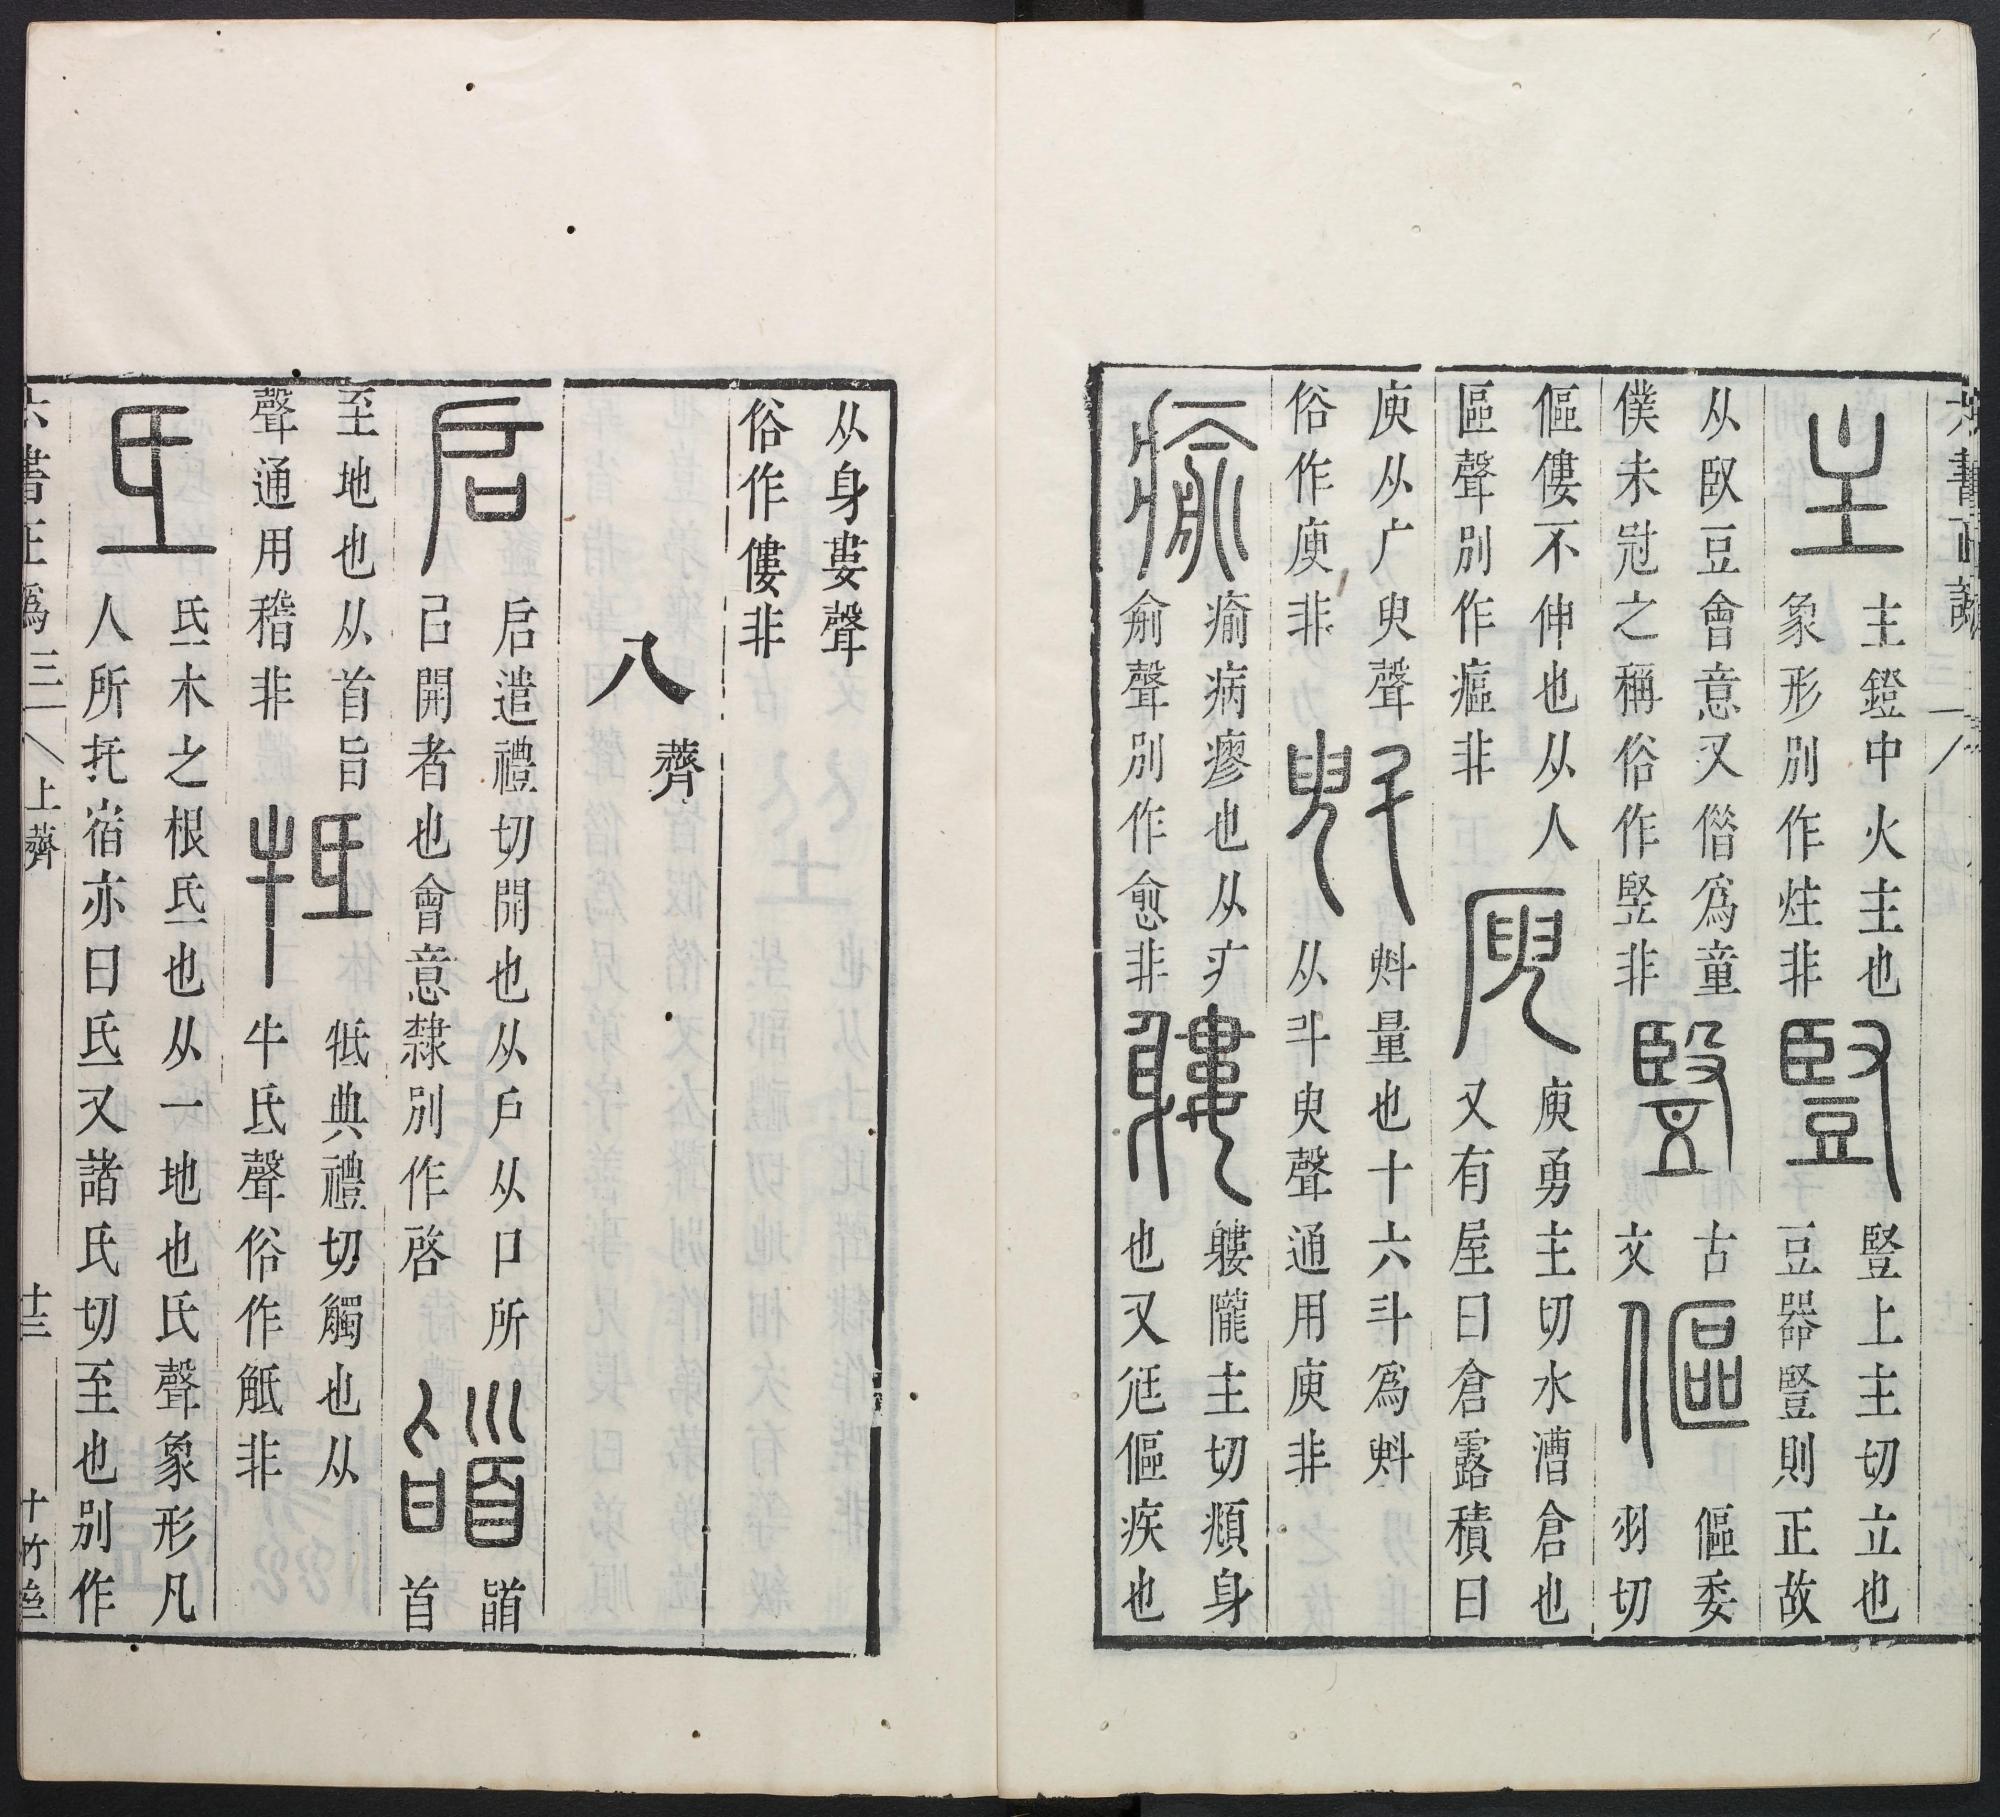 六書正譌
主
主鐙中火主也
象形別作炷非
豎
豎上主切立也
豆器豎則正故
从臤豆會意又偺爲童
僕未冠之稱俗作竪非
豎
古
文
傴
傴委
羽切
傴僂不伸也从人
區聲別作瘟非
庾
庾勇主切水漕倉也
又有屋曰倉露積曰
庾从广臾聲
俗作庾非
斞
斞量也十六斗爲斞
从斗臾聲通用庾非
瘉
瘉病瘳也从疒
俞聲別作愈非
軁
軁隴主切頫身
也又尪傴疾也
从身婁聲
俗作僂非
八 薺
启
启遣禮切開也从戶从口所
己開者也會意隸別作啓
䭫
䭫
首
至地也从首旨
聲通用稽非
牴
牴典禮切觸也从
牛氐聲俗作觝非
氐
氐木之根氐也从一地也氏聲象形凡
人所托宿亦曰氐又諸氏切至也別作
六書正譌 三 上薺 十三 十竹堂